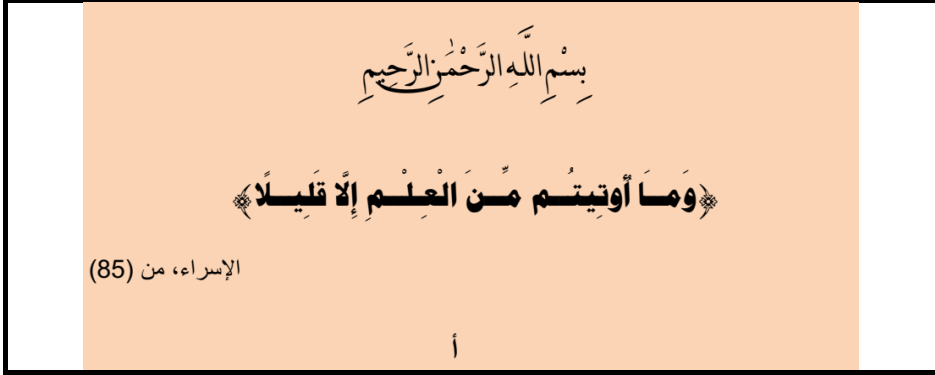 بِسْمِ اللَّهِ الرَّحْمَٰنِ الرَّحِيمِ
﴿وَمَا أُوتِيتُم مِّنَ الْعِلْمِ إِلَّا قَلِيلًا﴾
الإسراء، من (85)
أ